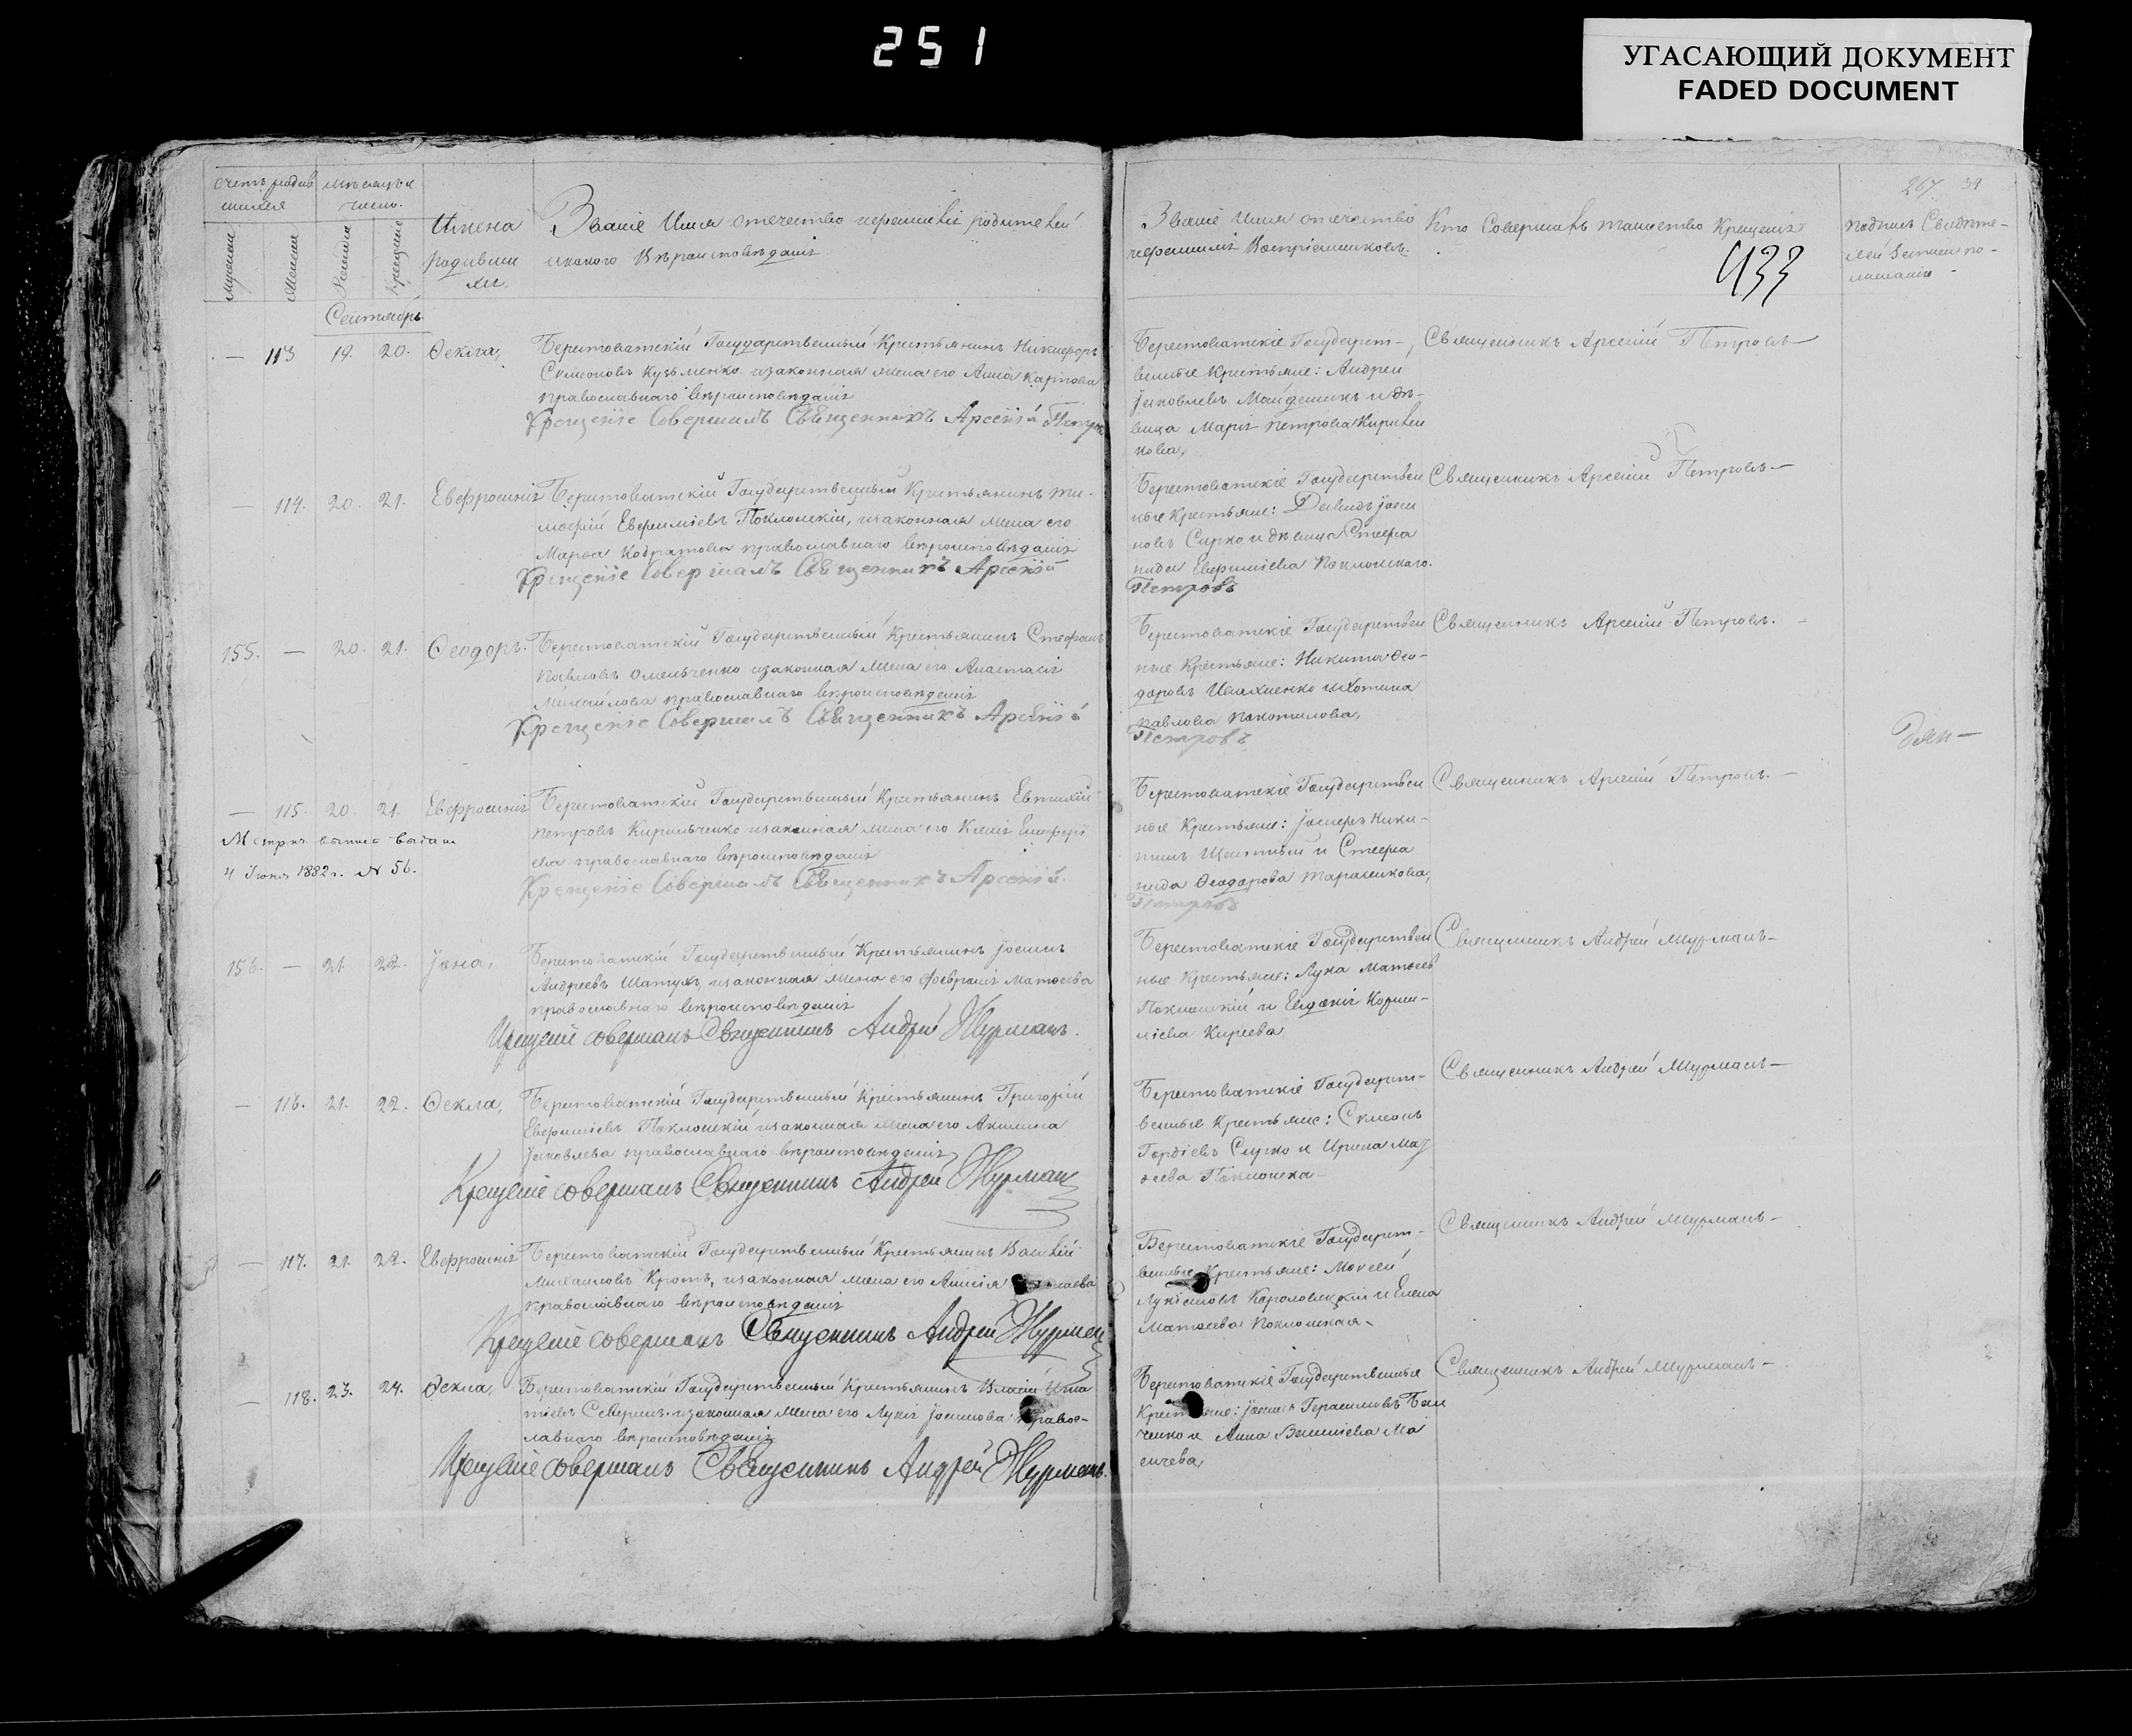 251
УГАСАЮЩИЙ ДОКУМЕНТ
FADED DOCUMENT
267 34
433
Счетъ родив
шихся
Мѣсяцъ и
число.
Имена
родивши
хся
Званіе Имя отечество и фамилія родителей
и какого Вѣроисповѣданія
Званіе Имя отечество
и фамилія Воспріемниковъ.
Кто Совершалъ таинство Крещенія
Сентябрь
— 113 19. 20. Ѳекла,
Берестоватскій Государственный Крестьянинъ Никифоръ
Симеоновъ Кузьменко и законная жена его Анна Карпова
православнаго вѣроисповѣданія
Крещеніе Совершалъ Священникъ Арсеній Петров
Берестоватскіе Государст-
венные Крестьяне: Андрей
Яковлевъ и дѣ-
вица Марія Петрова
Священникъ Арсеній Петровъ
— 114. 20. 21. Евфросинія
Берестоватскій Государственный Крестьянинъ Ти-
моѳій Евфиміевъ Поклонскій, и законная жена его
Марѳа Кодратова православнаго вѣроисповѣданія
Крещеніе Совершалъ Священникъ Арсеній
Берестоватскіе Государствен
ные Крестьяне: Давидъ
Сирко и дѣвица Стефа
нида Евфиміева Поклонскаго.
Петровъ
Священникъ Арсеній Петровъ—
155. — 20. 21. Ѳеодоръ.
Берестоватскій Государственный Крестьянинъ Стефанъ
Павловъ Омельченко и законная жена его Анастасія
Михайлова православнаго вѣроисповѣданія
Крещеніе Совершалъ Священникъ Арсеній
Берестоватскіе Государствен
ные Крестьяне: Никита Ѳео-
доровъ Ивахненко и
Павлова Покотилова,
Петровъ
Священникъ Арсеній Петровъ.
— 115. 20. 21. Евфросинія
Метрич. выпись выдана
4 1882 г. № 56.
Берестоватскій Государственный Крестьянинъ Евтихій
Петровъ Кирильченко и законная жена его Ксенія
православнаго вѣроисповѣданія
Крещеніе Совершалъ Священникъ Арсеній
Берестоватскіе Государствен
ные Крестьяне: Ники-
тинъ и Стефа
нида Ѳеодорова Тараненкова,
Петровъ
Священникъ Арсеній Петровъ.—
156. — 21. 22. Іона,
Берестоватскій Государственный Крестьянинъ
Андреевъ и законная жена его Февронія Матѳеева
православнаго вѣроисповѣданія
Крещеніе совершалъ Священникъ Андрей Журманъ.
Берестоватскіе Государствен
ные Крестьяне: Лука Матѳеев
Поклонскій и Евдокія Корни-
ліева Киреева
Священникъ Андрей Журманъ—
— 116. 21. 22. Ѳекла,
Берестоватскій Государственный Крестьянинъ Григорій
Евфиміевъ Поклонскій и законная жена его Акилина
Яковлева православнаго вѣроисповѣданія
Крещеніе совершалъ Священникъ Андрей Журман
Берестоватскіе Государст-
венные Крестьяне: Симеонъ
Гордіевъ Сирко и Ирина Мат
ѳеева Поклонска
Священникъ Андрей Журманъ—
— 117. 21. 22. Евфросинія
Берестоватскій Государственный Крестьянинъ Василій
Михайловъ Кротъ, и законная жена его Анисія
православнаго вѣроисповѣданія
Крещеніе совершалъ Священникъ Андрей Журман
Берестоватскіе Государст-
венные Крестьяне: Моисей
Лукіановъ и Елена
Матѳеева Поклонская
Священникъ Андрей Журманъ—
— 118. 23. 24. Ѳекла,
Берестоватскій Государственный Крестьянинъ Власій Игна
тіевъ и законная жена его Лукія правос-
лавнаго вѣроисповѣданія
Крещеніе совершалъ Священникъ Андрей Журманъ.
Берестоватскіе Государственные
Крестьяне: Герасимовъ
и Анна
Священникъ Андрей Журманъ—